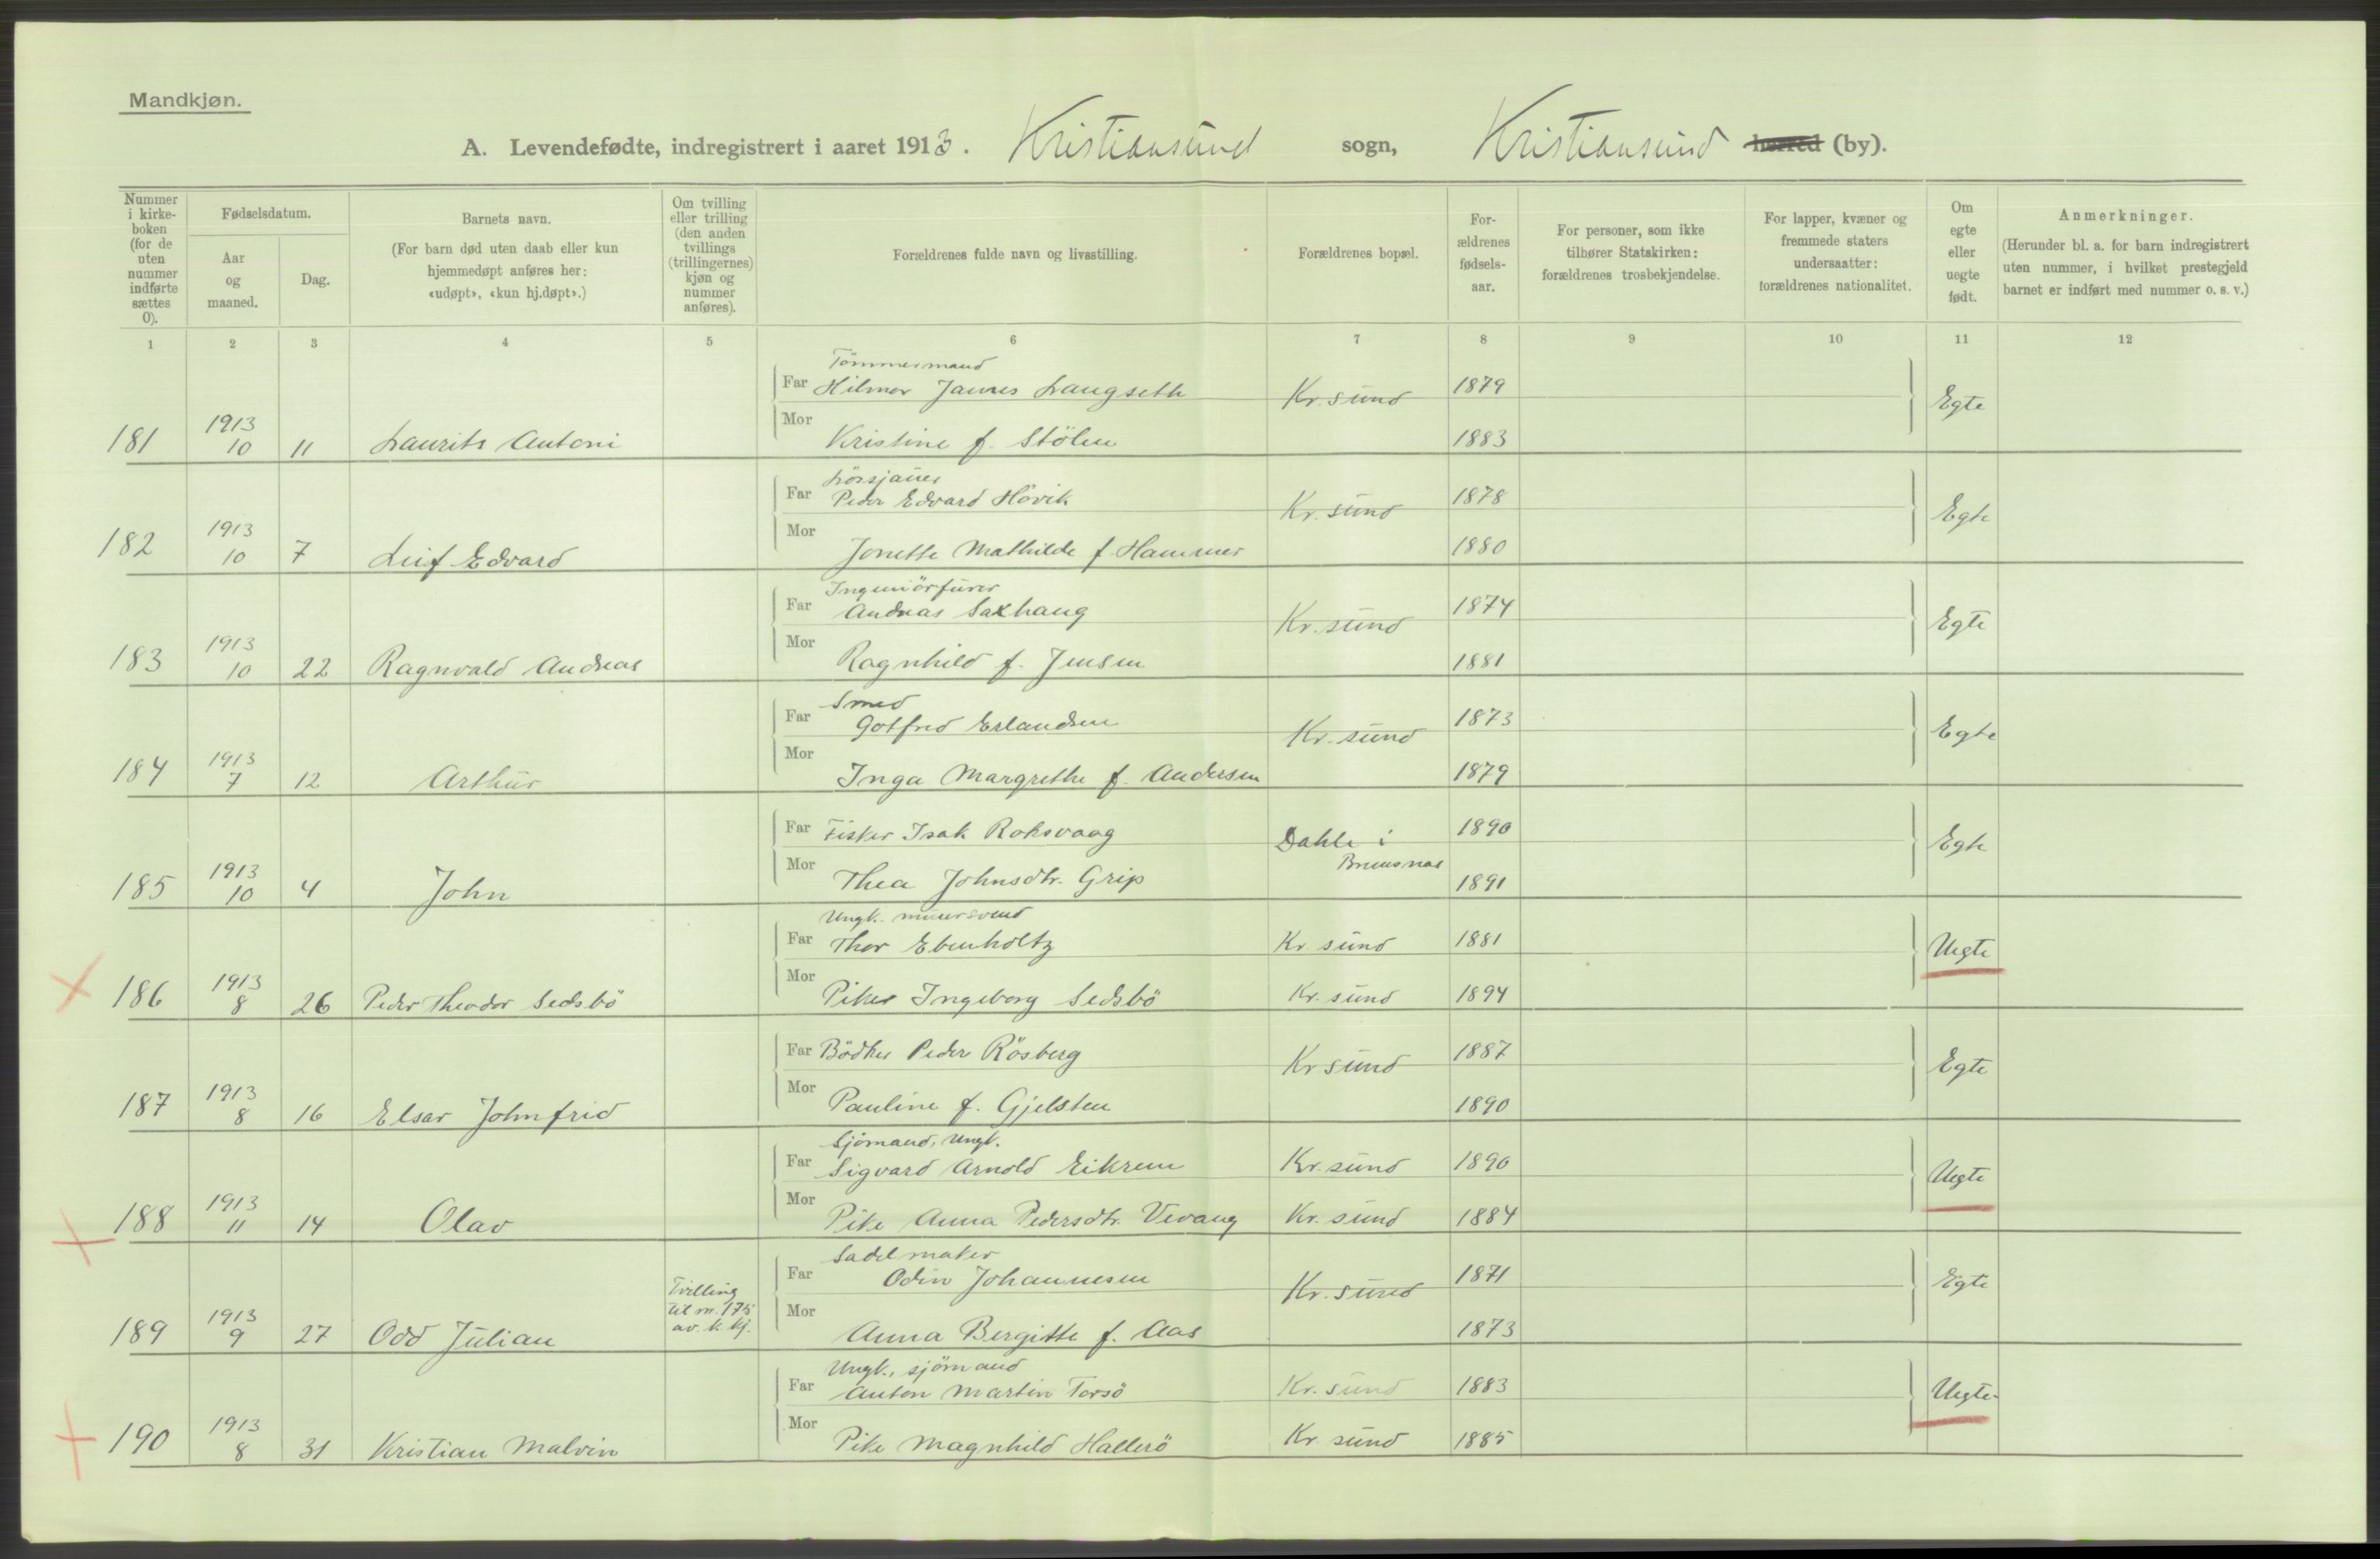 Mandkjøn.
A. Levendefødte, indregistrert i aaret 1913. Kristiansund sogn, Kristiansund herred (by).
Nummer i kirke-boken (for de uten nummer indførte sættes 0).
Fødselsdatum.
Aar og maaned.
Dag.
Barnets navn.
(For barn død uten daab eller kun hjemmedøpt anføres her: «udøpt», «kun hj.døpt».)
Om tvilling eller trilling (den anden tvillings (trillingernes) kjøn og nummer anføres).
Forældrenes fulde navn og livsstilling.
Forældrenes bopæl.
For-ældrenes fødsels-aar.
For personer, som ikke tilhører Statskirken: forældrenes trosbekjendelse.
For lapper, kvæner og fremmede staters undersaatter: forældrenes nationalitet.
Om egte eller uegte født.
Anmerkninger.
(Herunder bl. a. for barn indregistrert uten nummer, i hvilket prestegjeld barnet er indført med nummer o. s. v.)
1 2 3 4 5 6 7 8 9 10 11 12
Tömmermand
Far Hilmar James Langseth Kr. sund 1879 Egte
181 1913 10 11 Laurits Antoni
Mor Kristine f. Stölen 1883
Far Peder Edvard Hövik Kr. sund 1878 Egte
182 1913 10 7 Leif Edvard
Mor Jonette Mathilde f. Hammer 1880
Far Andreas Saxhaug Kr. sund 1874 Egte
183 1913 10 22 Ragnvald Andreas
Mor Ragnhild f. Jensen 1881
Smed
Far Gotfred Erlandsen Kr. sund 1873 Egte
184 1913 7 12 Arthur
Mor Inga Margrethe f. Andersen 1879
Far Fisker Isak Roksvaag Dahle i Bremsnes 1890 Egte
185 1913 10 4 John
Mor Thea Johnsdtr. Grip 1891
Ungk. murersvend
Far Thor Ebenholtz Kr. sund 1881 Uegte
186 1913 8 26 Peder Theodor Sedsbö
Mor Piker Ingeborg Sedsbö Kr. sund 1894
Far Bödker Peder Rösberg Kr sund 1887 Egte
187 1913 8 16 Elsar Johnfrid
Mor Pauline f. Gjelsten 1890
Sjömand, Ungk.
Far Sigvard Arnold Eikrem Kr. sund 1890 Uegte
188 1913 11 14 Olav
Mor Pike Anna Pedersdtr. Vevang Kr. sund 1884
Sadelmaker
Far Odin Johannesen Kr. sund 1871 Egte
189 1913 9 27 Odd Julian Tvilling til nr. 175 av k. kj.
Mor Anna Bergitte f. Aas 1873
Ungk., sjömand
Far Anton Martin Torsö Kr. sund 1883 Uegte
190 1913 8 31 Kristian Malvin
Mor Pike Magnhild Hallerö Kr. sund 1885